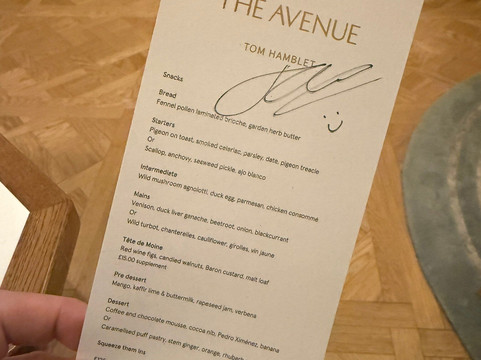 THE AVENUE
TOM HAMBLET
Snacks
Bread
Fennel pollen laminated brioche, garden herb butter
Starters
Pigeon on toast, smoked celeriac, parsley, date, pigeon treacle
Or
Scallop, anchovy, seaweed pickle, ajo blanco
Intermediate
Wild mushroom agnolotti, duck egg, parmesan, chicken consomme
Mains
Venison, duck liver ganache, beetroot, onion, blackcurrant
Or
Wild turbot, chanterelles, cauliflower, girolles, vin jaune
Tête de Moine
Red wine figs, candied walnuts, Baron custard, malt loaf
£15.00 supplement
Pre dessert
Mango, kaffir lime & buttermilk, rapeseed jam, verbena
Dessert
Coffee and chocolate mousse, cocoa nib, Pedro Ximénez, banana
Or
Caramelised puff pastry, stem ginger, orange, rhubarb
Squeeze them ins